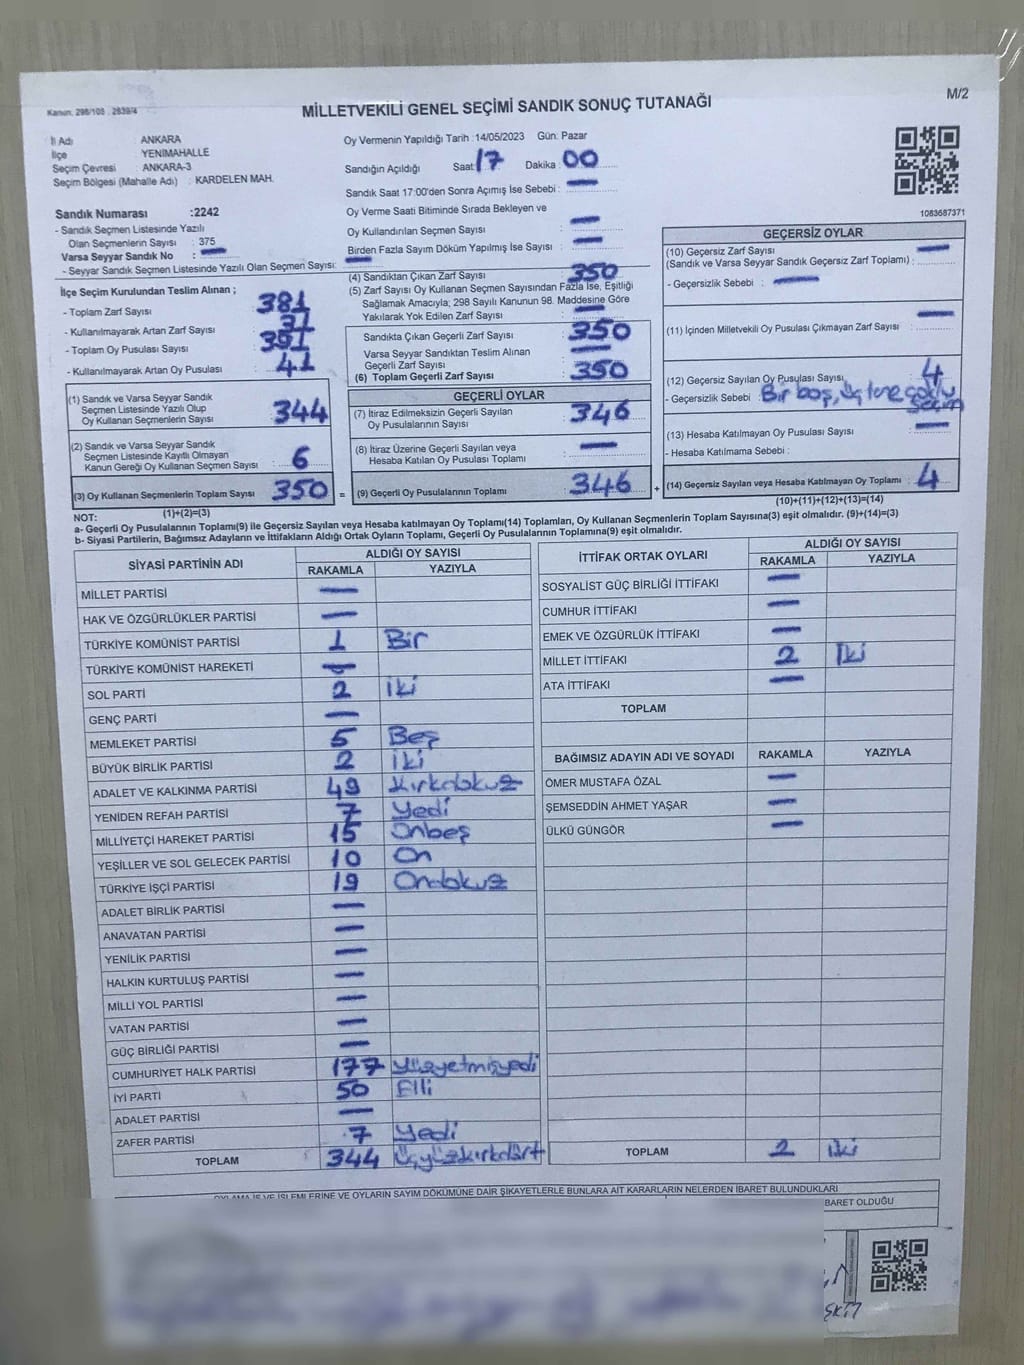 Kanun: 298/105 , 2839/4
MİLLETVEKİLİ GENEL SEÇİMİ SANDIK SONUÇ TUTANAĞI
M/2
İl Adı : ANKARA
İlçe : YENİMAHALLE
Seçim Çevresi : ANKARA-3
Seçim Bölgesi (Mahalle Adı) : KARDELEN MAH.
Sandık Numarası :2242
- Sandık Seçmen Listesinde Yazılı
Olan Seçmenlerin Sayısı : 375
Varsa Seyyar Sandık No : —
- Seyyar Sandık Seçmen Listesinde Yazılı Olan Seçmen Sayısı: —
İlçe Seçim Kurulundan Teslim Alınan ;
- Toplam Zarf Sayısı 381
- Kullanılmayarak Artan Zarf Sayısı 31
- Toplam Oy Pusulası Sayısı 391
- Kullanılmayarak Artan Oy Pusulası 41
(1) Sandık ve Varsa Seyyar Sandık
Seçmen Listesinde Yazılı Olup
Oy Kullanan Seçmenlerin Sayısı : 344
(2) Sandık ve Varsa Seyyar Sandık
Seçmen Listesinde Kayıtlı Olmayan
Kanun Gereği Oy Kullanan Seçmen Sayısı : 6
(3) Oy Kullanan Seçmenlerin Toplam Sayısı 350
(1)+(2)=(3)
Oy Vermenin Yapıldığı Tarih : 14/05/2023 Gün: Pazar
Sandığın Açıldığı Saat: 17 Dakika : 00
Sandık Saat 17:00'den Sonra Açımış İse Sebebi : —
Oy Verme Saati Bitiminde Sırada Bekleyen ve
Oy Kullandırılan Seçmen Sayısı —
Birden Fazla Sayım Döküm Yapılmış İse Sayısı —
(4) Sandıktan Çıkan Zarf Sayısı 350
(5) Zarf Sayısı Oy Kullanan Seçmen Sayısından Fazla İse, Eşitliği
Sağlamak Amacıyla; 298 Sayılı Kanunun 98. Maddesine Göre
Yakılarak Yok Edilen Zarf Sayısı : —
Sandıkta Çıkan Geçerli Zarf Sayısı : 350
Varsa Seyyar Sandıktan Teslim Alınan
Geçerli Zarf Sayısı —
(6) Toplam Geçerli Zarf Sayısı : 350
GEÇERLİ OYLAR
(7) İtiraz Edilmeksizin Geçerli Sayılan
Oy Pusulalarının Sayısı : 346
(8) İtiraz Üzerine Geçerli Sayılan veya
Hesaba Katılan Oy Pusulası Toplamı : —
= (9) Geçerli Oy Pusulalarının Toplamı : 346
1083687371
GEÇERSİZ OYLAR
(10) Geçersiz Zarf Sayısı —
(Sandık ve Varsa Seyyar Sandık Geçersiz Zarf Toplamı) :
- Geçersizlik Sebebi : —
(11) İçinden Milletvekili Oy Pusulası Çıkmayan Zarf Sayısı : —
(12) Geçersiz Sayılan Oy Pusulası Sayısı : 4
- Geçersizlik Sebebi : Bir boş, üç tane çoklu
seçim
(13) Hesaba Katılmayan Oy Pusulası Sayısı : —
- Hesaba Katılmama Sebebi :
+ (14) Geçersiz Sayılan veya Hesaba Katılmayan Oy Toplamı : 4
(10)+(11)+(12)+(13)=(14)
NOT:
a- Geçerli Oy Pusulasının Toplamı(9) ile Geçersiz Sayılan veya Hesaba katılmayan Oy Toplamı(14) Toplamları, Oy Kullanan Seçmenlerin Toplam Sayısına(3) eşit olmalıdır. (9)+(14)=(3)
b- Siyasi Partilerin, Bağımsız Adayların ve İttifakların Aldığı Ortak Oyların Toplamı, Geçerli Oy Pusulalarının Toplamına(9) eşit olmalıdır.
SİYASİ PARTİNİN ADI ALDIĞI OY SAYISI
RAKAMLA YAZIYLA
MİLLET PARTİSİ —
HAK VE ÖZGÜRLÜKLER PARTİSİ —
TÜRKİYE KOMÜNİST PARTİSİ 1 Bir
TÜRKİYE KOMÜNİST HAREKETİ —
SOL PARTİ 2 iki
GENÇ PARTİ —
MEMLEKET PARTİSİ 5 Beş
BÜYÜK BİRLİK PARTİSİ 2 iki
ADALET VE KALKINMA PARTİSİ 49 Kırkdokuz
YENİDEN REFAH PARTİSİ 7 Yedi
MİLLİYETÇİ HAREKET PARTİSİ 15 Onbeş
YEŞİLLER VE SOL GELECEK PARTİSİ 10 On
TÜRKİYE İŞÇİ PARTİSİ 19 Ondokuz
ADALET BİRLİK PARTİSİ —
ANAVATAN PARTİSİ —
YENİLİK PARTİSİ —
HALKIN KURTULUŞ PARTİSİ —
MİLLİ YOL PARTİSİ —
VATAN PARTİSİ —
GÜÇ BİRLİĞİ PARTİSİ —
CUMHURİYET HALK PARTİSİ 177 Yüzyetmişyedi
İYİ PARTİ 50 Elli
ADALET PARTİSİ —
ZAFER PARTİSİ 7 Yedi
TOPLAM 344 Üçyüzkırkdört
İTTİFAK ORTAK OYLARI ALDIĞI OY SAYISI
RAKAMLA YAZIYLA
SOSYALİST GÜÇ BİRLİĞİ İTTİFAKI —
CUMHUR İTTİFAKI —
EMEK VE ÖZGÜRLÜK İTTİFAKI —
MİLLET İTTİFAKI 2 İki
ATA İTTİFAKI —
TOPLAM
BAĞIMSIZ ADAYIN ADI VE SOYADI RAKAMLA YAZIYLA
ÖMER MUSTAFA ÖZAL —
ŞEMSEDDİN AHMET YAŞAR —
ÜLKÜ GÜNGÖR —
TOPLAM 2 iki
OYLAMA İŞ VE İŞLEMLERİNE VE OYLARIN SAYIM DÖKÜMÜNE DAİR ŞİKAYETLERLE BUNLARA AİT KARARLARIN NELERDEN İBARET BULUNDUKLARI
BARET OLDUĞU